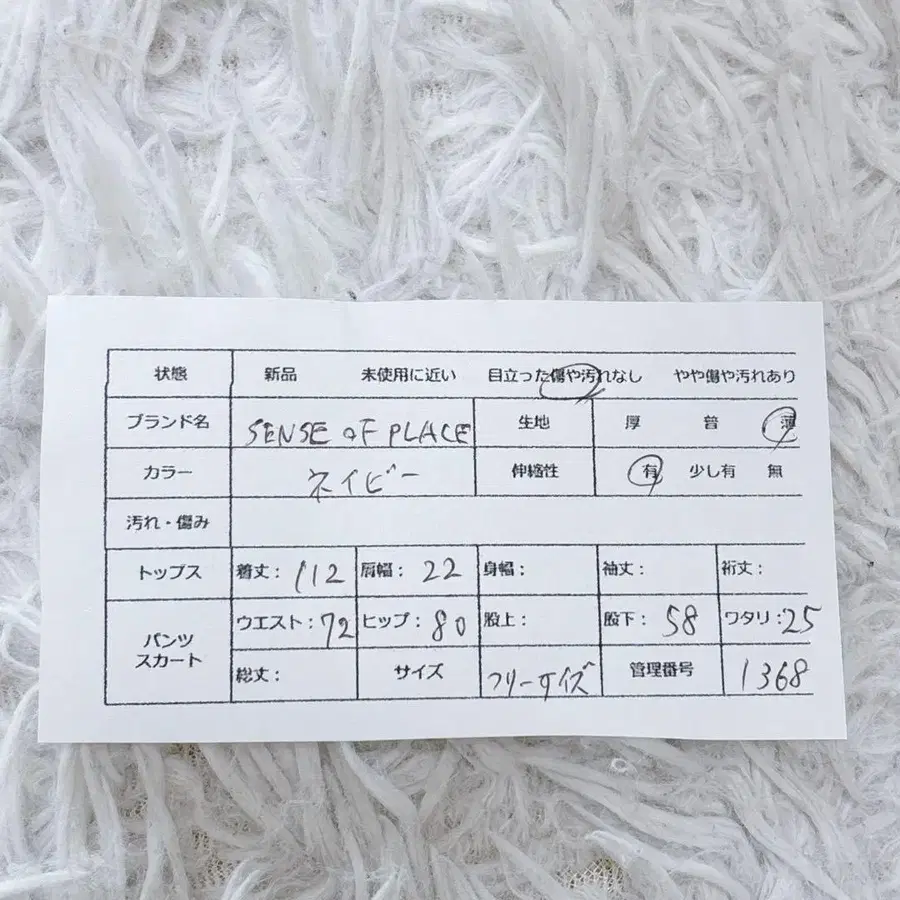 状態 新品 未使用に近い 目立った傷や汚れなし やや傷や汚れあり
ブランド名 SENSE OF PLACE 生地 厚 普 薄
カラー ネイビー 伸縮性 有 少し有 無
汚れ・傷み
トップス 着丈: 112 肩幅: 22 身幅: 袖丈: 裄丈:
パンツ スカート ウエスト: 72 ヒップ: 80 股上: 股下: 58 ワタリ: 25
総丈: サイズ フリーサイズ 管理番号 1368